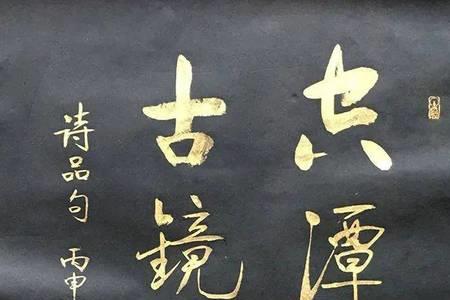 空潭
古鏡
诗品句 丙申